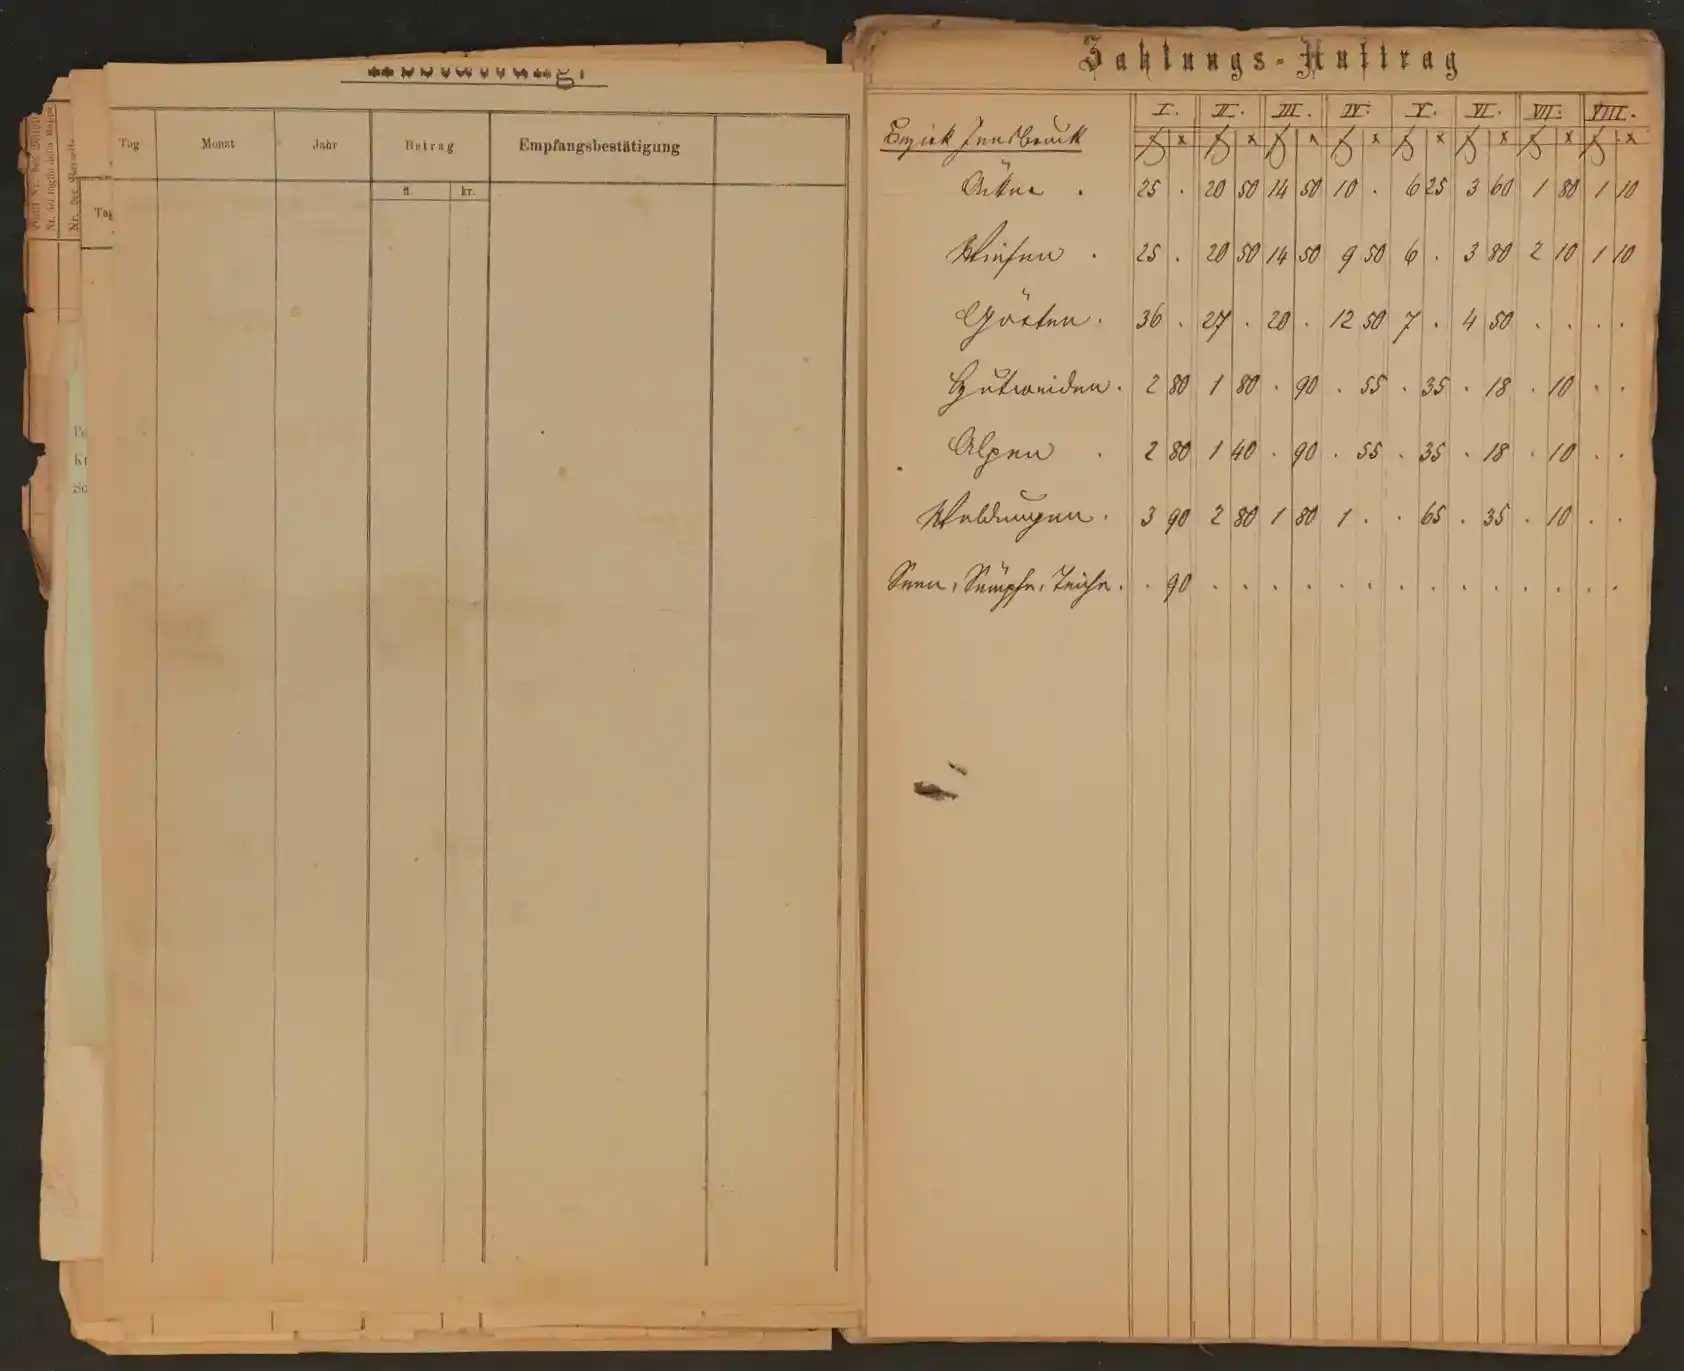 Tag Monat Jahr Betrag Empfangsbestätigung
fl. kr.
Tag
Zahlungs-Auftrag
I. II. III. IV. V. VI. VII. VIII.
Bezirk Innsbruck f x f x f x f x f x f x f x f x
Äcker . 25 . 20 50 14 50 10 . 6 25 3 60 1 80 1 10
Wiesen . 25 . 20 50 14 50 9 50 6 . 3 80 2 10 1 10
Gärten . 36 . 27 . 20 . 12 50 7 . 4 50 . . . .
Hutweiden . 2 80 1 80 . 90 . 55 . 35 . 18 . 10 . .
Alpen . 2 80 1 40 . 90 . 55 . 35 . 18 . 10 . .
Waldungen . 3 90 2 80 1 80 1 . . 65 . 35 . 10 . .
Seen, Sümpfe, Teiche . . 90 . . . . . . . . . . . . . .